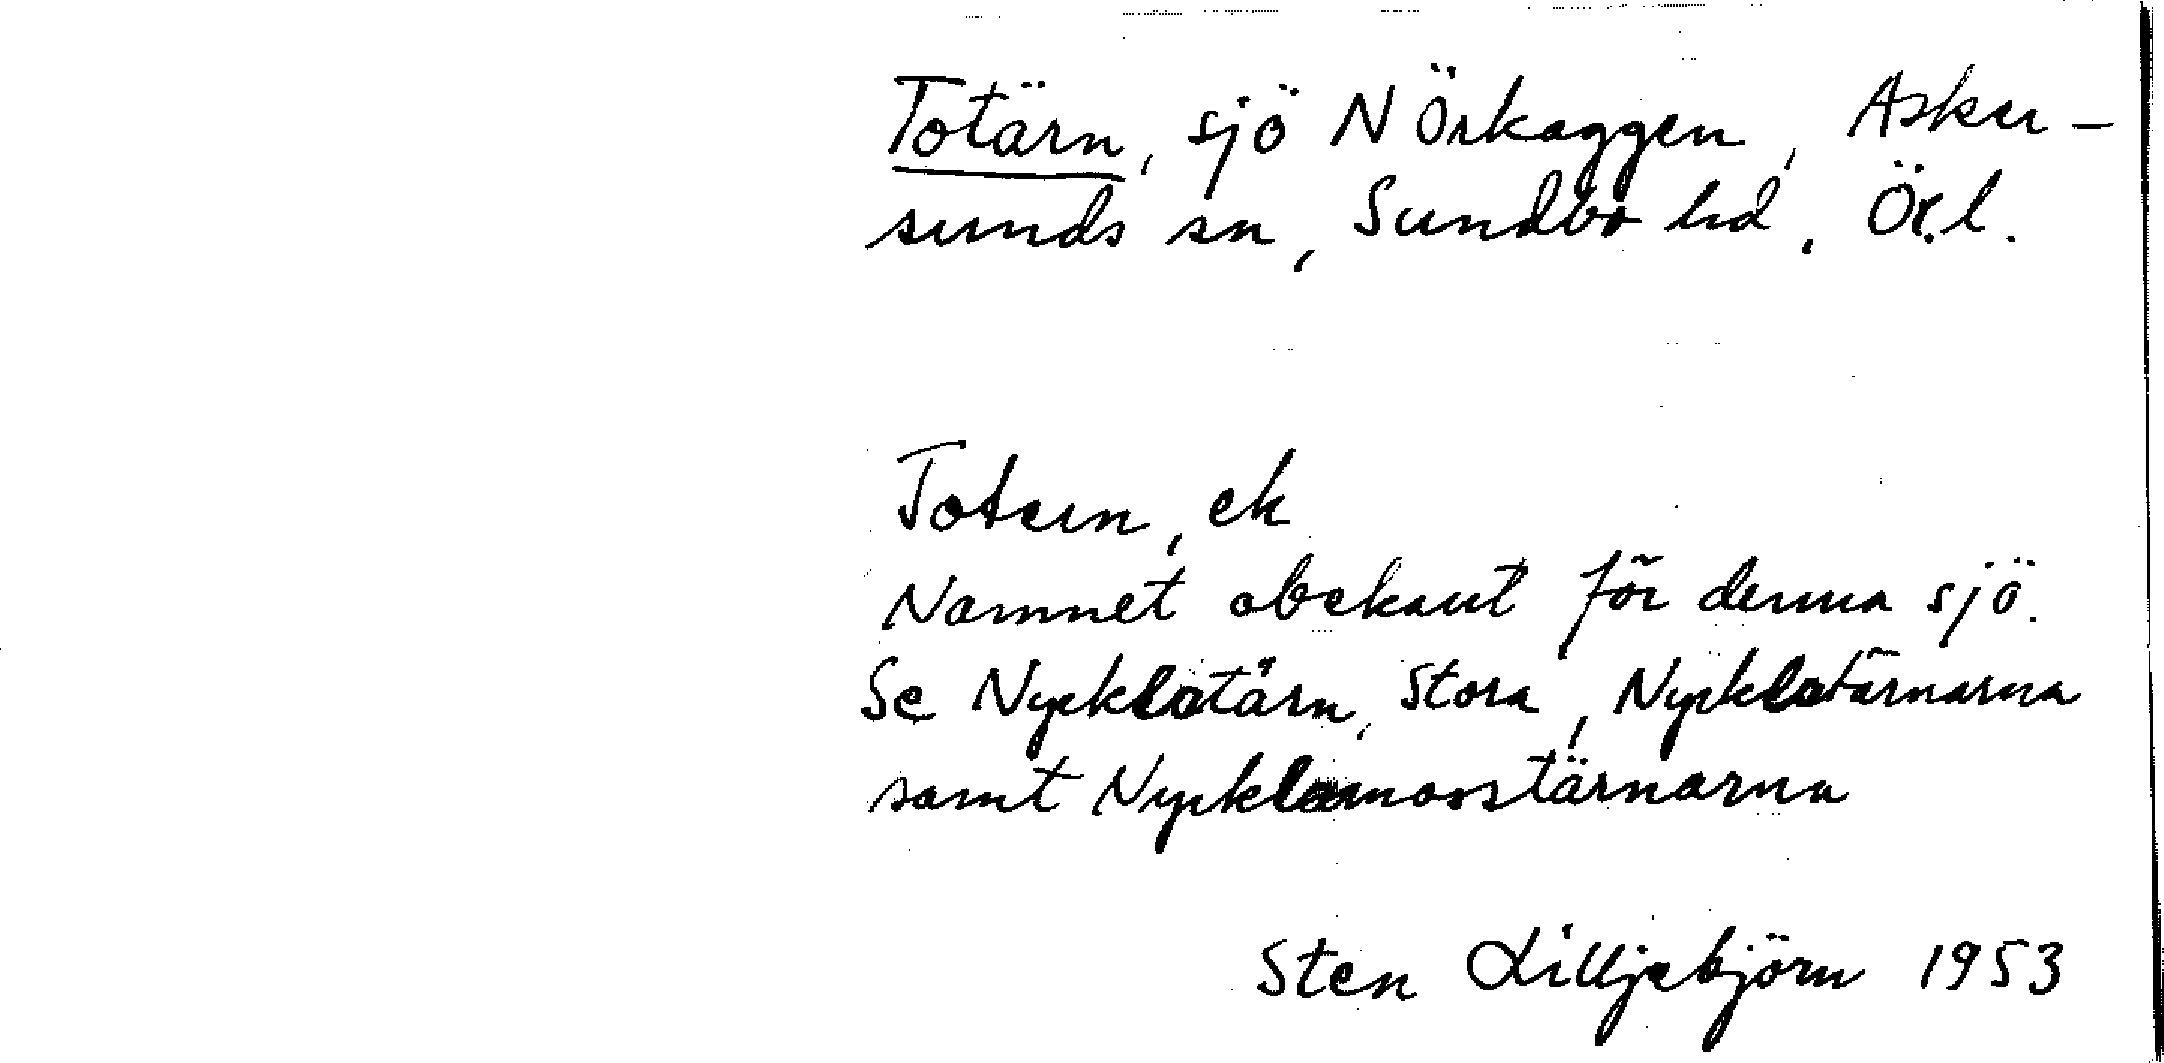 Totärn, sjö N Örkaggen, Asker-
sunds sn, Sundbo hd, Ör.l.
Totern, ek
Namnet obekant för denna sjö.
Se Nycklatärn, Stora, Nycklatärnarna
samt Nycklamosstärnarna
Sten Lilljebjörn 1953